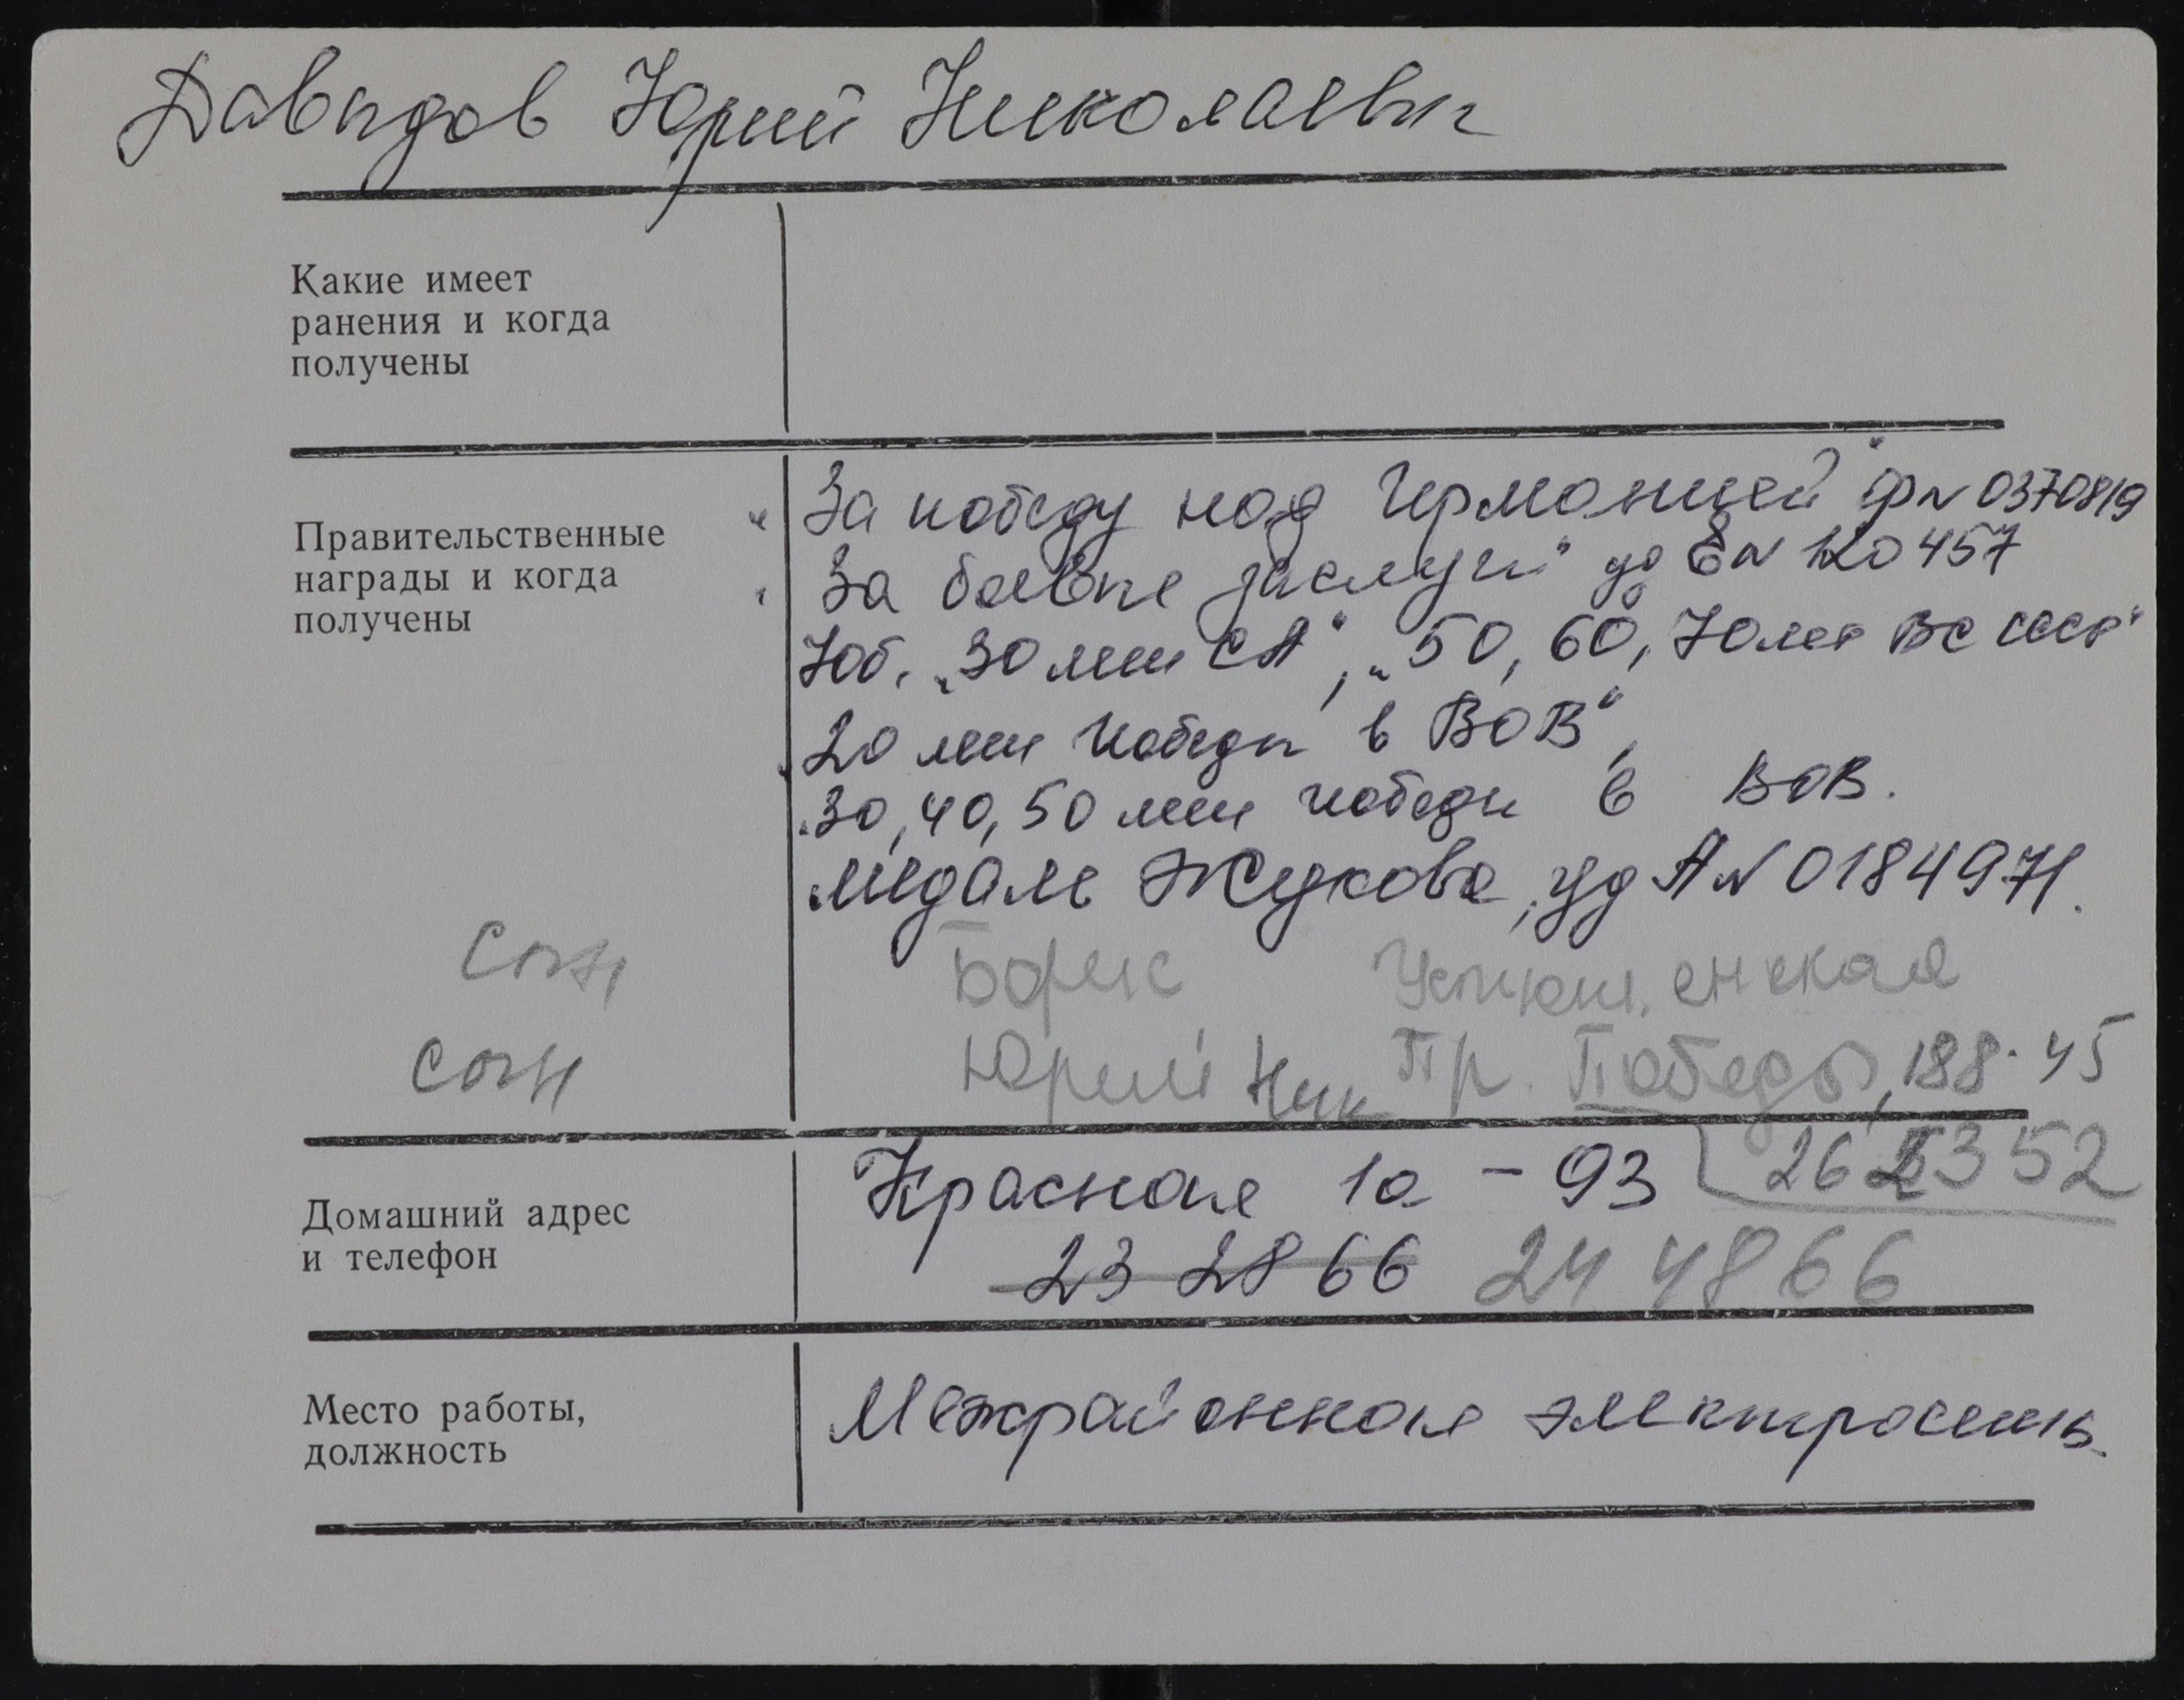 Давыдов Юрий Николаевич
Какие имеет
ранения и когда
получены
Правительственные
награды и когда
получены
"За победу над Германией" Ф№ 0370819
"За боевые заслуги" уд Е№ 120457
Юб. "30 лет СА", "50, 60, 70 лет ВС СССР"
"20 лет победы в ВОВ",
30, 40, 50 лет победы в ВОВ.
медаль Жукова, уд А№ 0184971.
сын Борис
сын Юрий Ник Пр. Победы, 188-45
Домашний адрес
и телефон
Красная 1а - 93
23 28 66 24 48 66
Место работы,
должность
Межрайонная электросеть